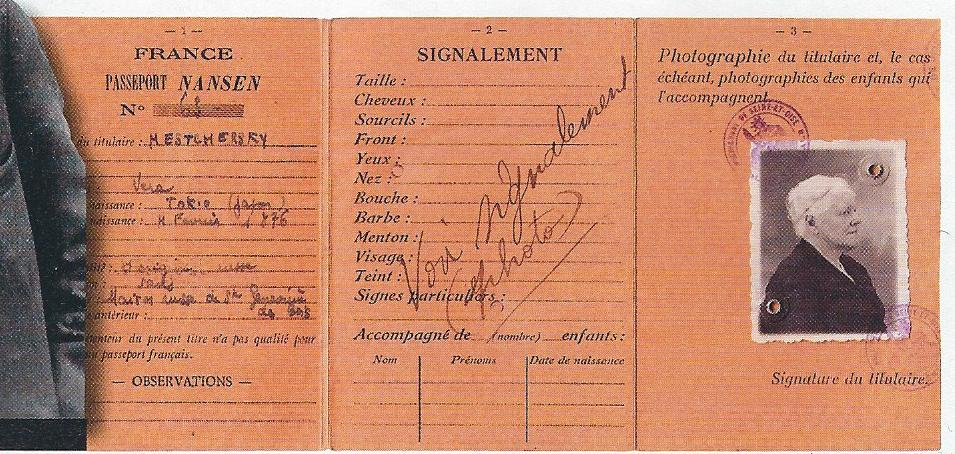 — 1 —
FRANCE
PASSEPORT NANSEN
N°
du titulaire : MESTCHERSKY
Vera
naissance : Tokio (Japon)
naissance : Fevrier 1876
: d'origine russe
: sans
Maison russe de Ste Geneviève
antérieur : des Bois
du présent titre n'a pas qualité pour
passeport français.
— OBSERVATIONS —
— 2 —
SIGNALEMENT
Taille :
Cheveux :
Sourcils :
Front :
Yeux :
Nez :
Bouche :
Barbe :
Menton :
Visage :
Teint :
Signes particuliers :
Voir signalement
(photo)
Accompagné de (nombre) enfants :
Nom Prénoms Date de naissance
— 3 —
Photographie du titulaire et, le cas
échéant, photographies des enfants qui
l'accompagnent.
DE SEINE-ET-OISE
Signature du titulaire.